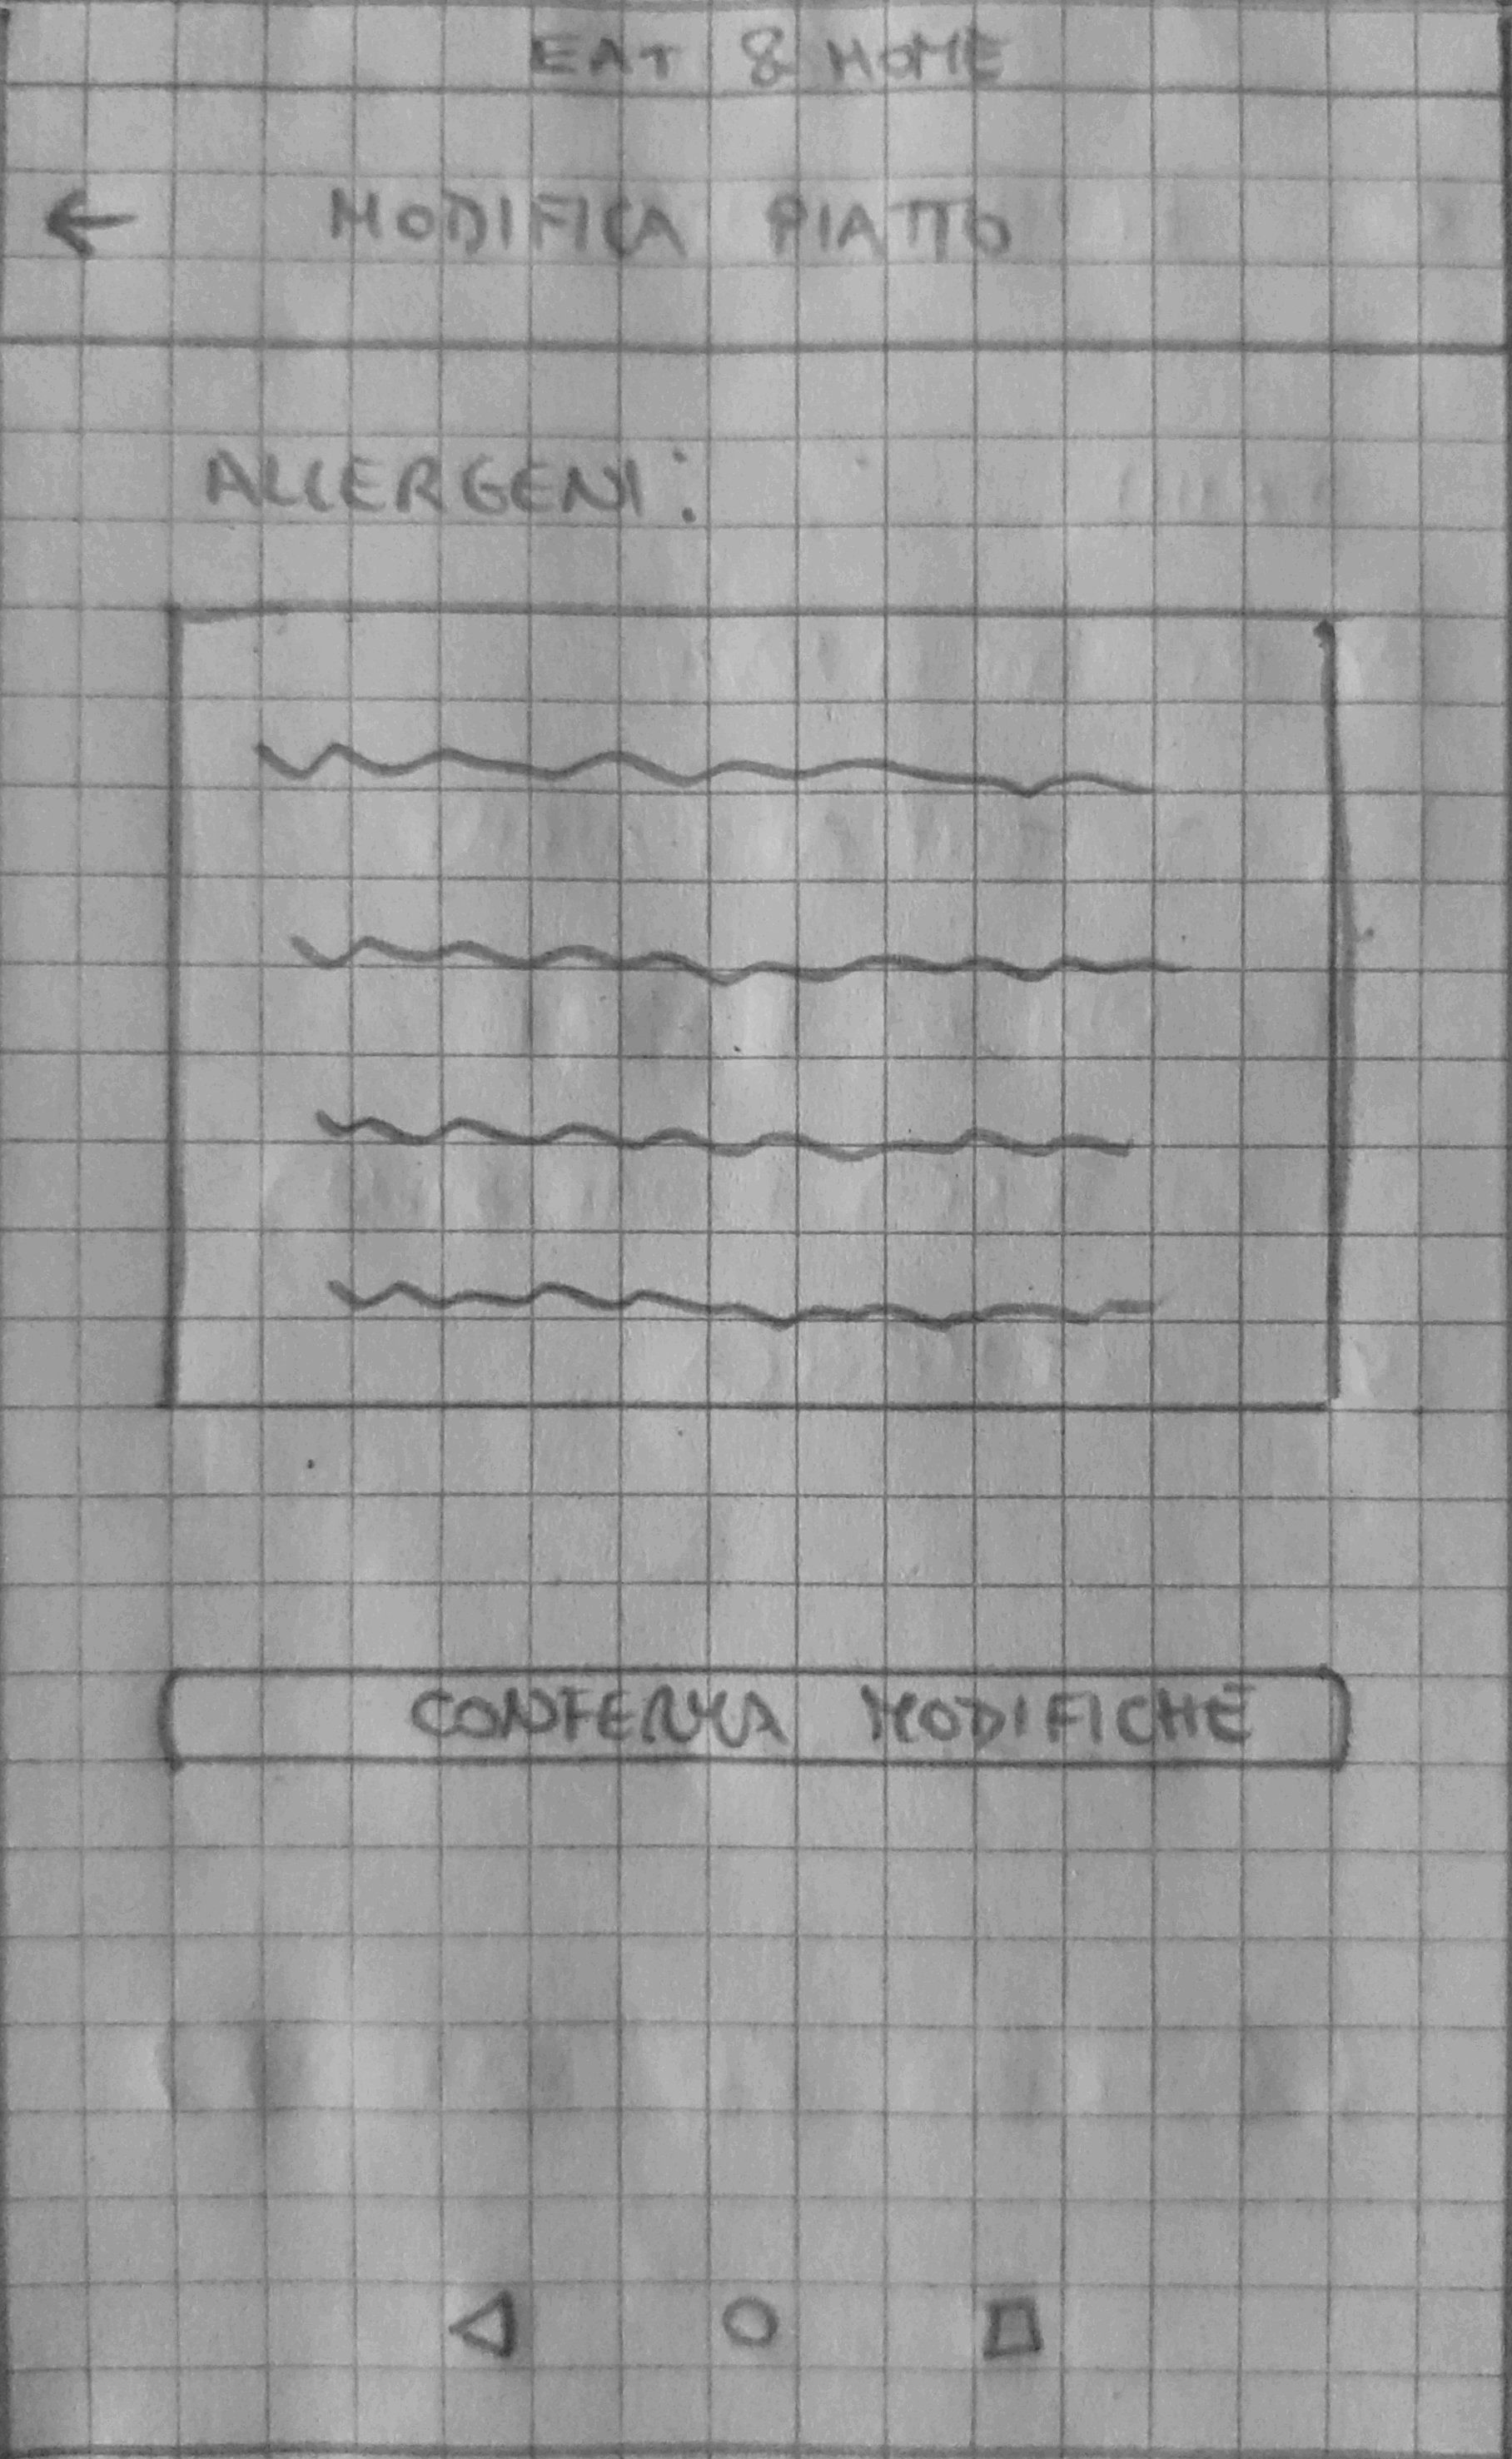 EAT & HOME
← MODIFICA PIATTO
ALLERGENI:
CONFERMA MODIFICHE